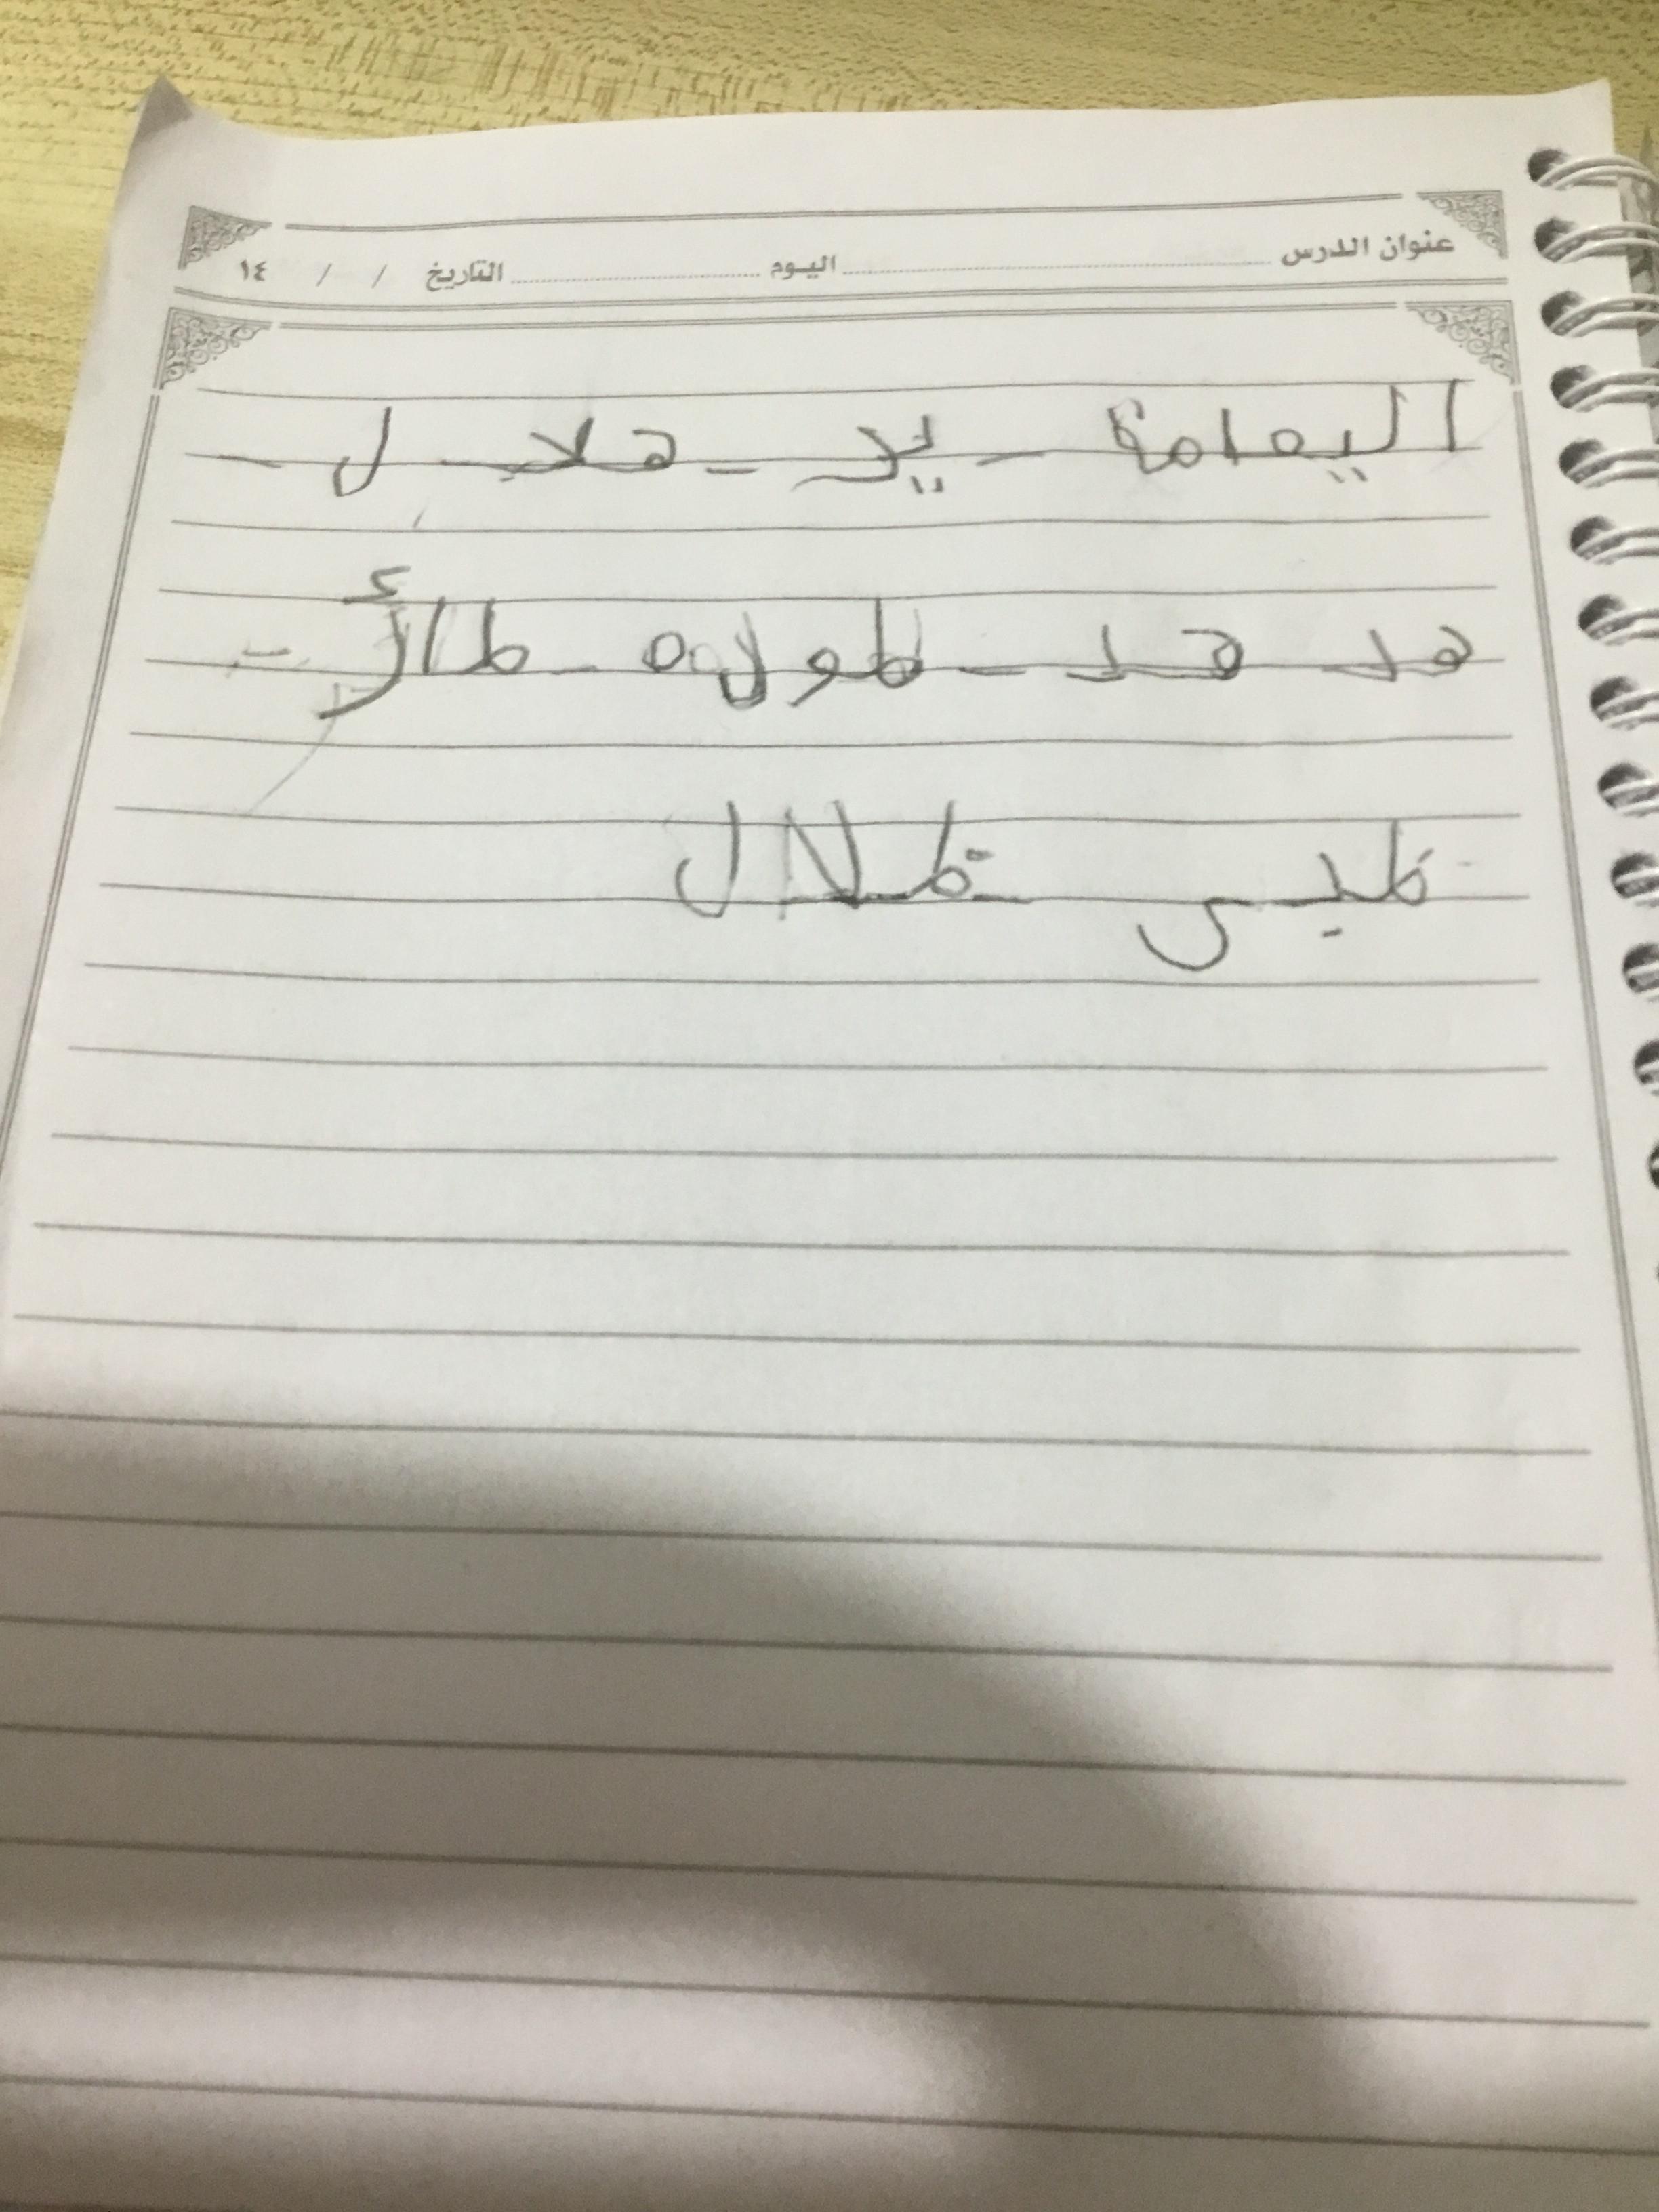 عنوان الدرس اليوم التاريخ / / ١٤
اليمامة - يد - هلا ل -
هد هد - طوله - طائر -
ظبي ظلال